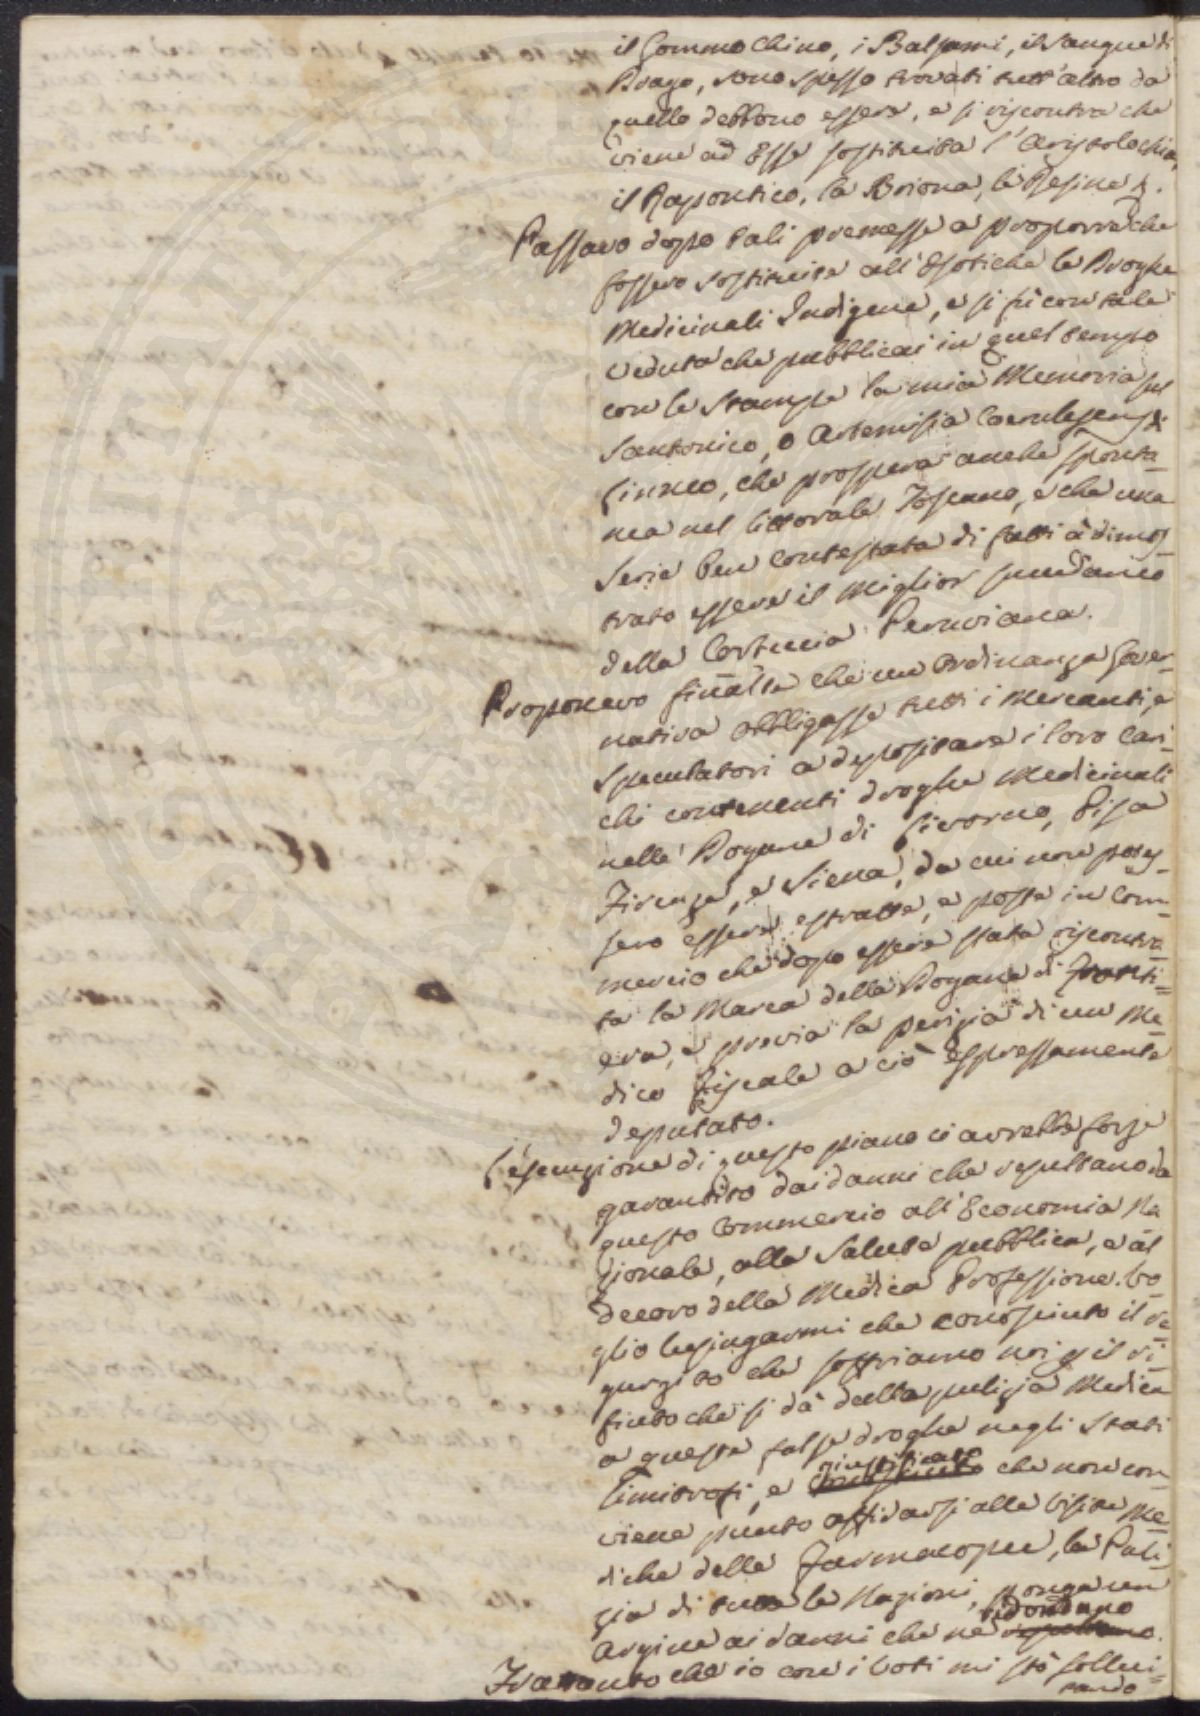 il Gommo Chino, i Balsami, il Sangue di
Drago, sono spesso trovati tutt'altro da
quello debbono essere, e si riscontra che
viene ad Esse sostituita l'Aristolochia,
il Rapontico, la Briona, le Resine &.
Passavo dopo tali premesse a proporre che
fossero sostituite all'Esotiche le Droghe
Medicinali Indigene, e si fù con tale
veduta che pubblicai in quel tempo
con le Stampe la mia Memoria sul
Santonico, o Artemisia Coerulescens di
Linneo, che prospera anche sponta-
nea nel littorale Toscano, e che una
serie ben contestata di fatti à dimos-
trato essere il miglior succedaneo
della Corteccia Peruviana.
Proponevo finalte che un Ordinanza Gover-
nativa obbligasse tutti i Mercanti, e
Speculatori a depositare i loro Cari-
chi contenenti droghe Medicinali
nelle Dogane di Livorno, Pisa
Firenze, e Siena, da cui non potes-
sero essere estratte, e poste in com-
mercio che dopo essere stata riscontra-
ta la Marca della Dogana di Fronti-
era, e previa la perizia di un Me-
dico fiscale a ciò espressamente
deputato.
L'esenzione di questo piano ci avrebbe forse
garantito dai danni che resultano da
questo Commercio all'Economia Na-
zionale, alla Salute pubblica, e al
decoro della Medica Professione. Vo-
glio lusingarmi che conosciuto il re-
gurgito che soffriamo noi p il ri-
fiuto che si dà dalla pulizia Medica
a queste false droghe negli Stati
limitrofi, e che non con-
viene punto affidarsi alle visite Me-
diche delle Farmacopee, la Puli-
zia di tutte le Nazioni, ponga un
ridondano
Argine ai danni che ne resultano.
Frattanto che io con i voti mi stò solleci-
tando